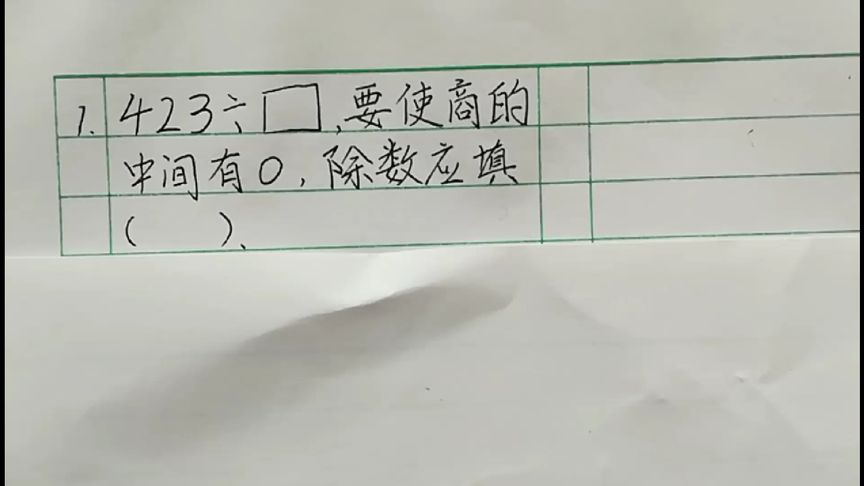 1. 423÷□,要使商的
中间有0,除数应填
( )、